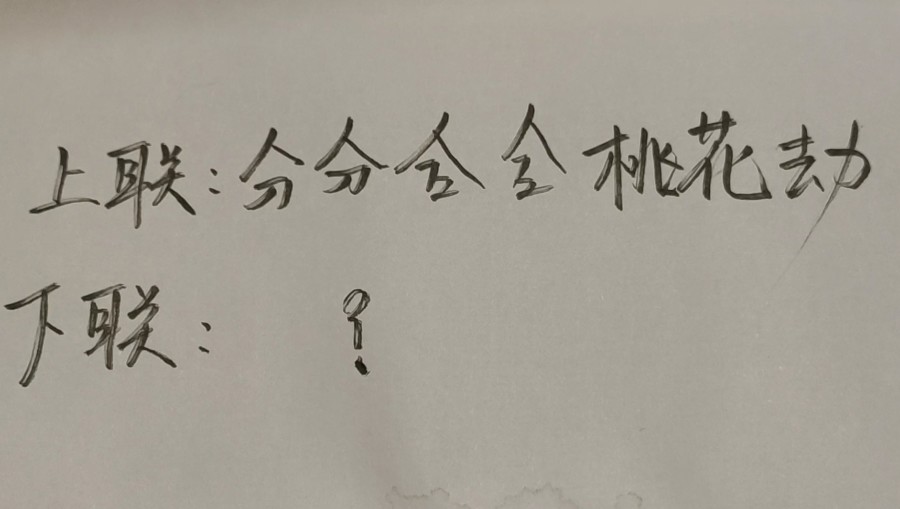 上联:分分合合桃花劫
下联: ?